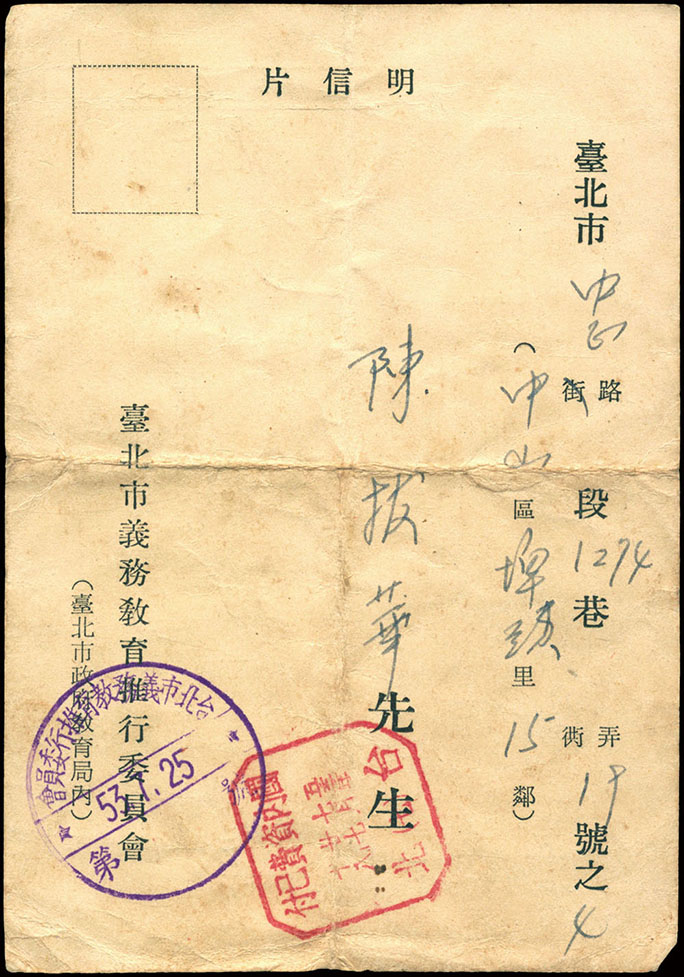 明信片
臺北市 中正 路街 段 1294 巷 弄衖 19 號之 4
（中山區 埤頭 里 15 鄰）
陳拔華先生
臺北市義務敎育推行委員會
（臺北市政府敎育局內）
台北市義務教育推行委員會
53.1.25
第 號
台北
國內資費已付